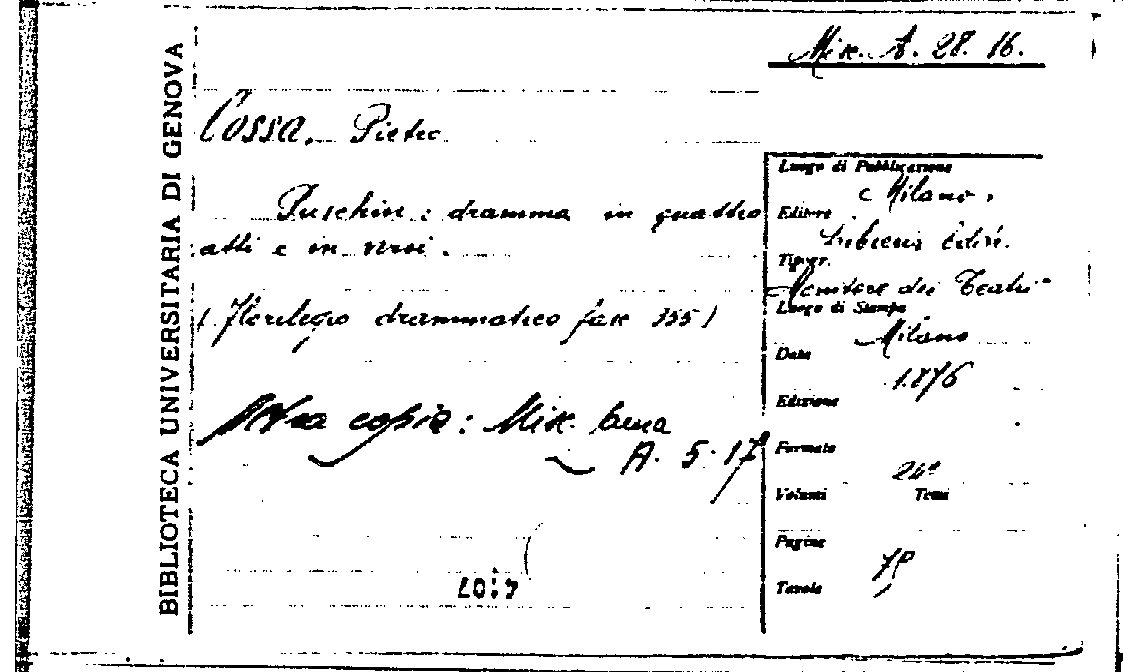 BIBLIOTECA UNIVERSITARIA DI GENOVA
Misc. A. 28. 16.
Cossa, Pietro
Puschin: dramma in quattro
atti e in versi.
(Florilegio drammatico fasc 355)
Altra copia: Misc.
A. 5. 17
Luogo di Pubblicazione
Milano.
Editore
Libreria Editr.
Tipogr.
Monitore dei Teatri"
Luogo di Stampa
Milano
Data
1876
Edizione
Formato
24º
Volumi Tomi
Pagine
78
Tavole